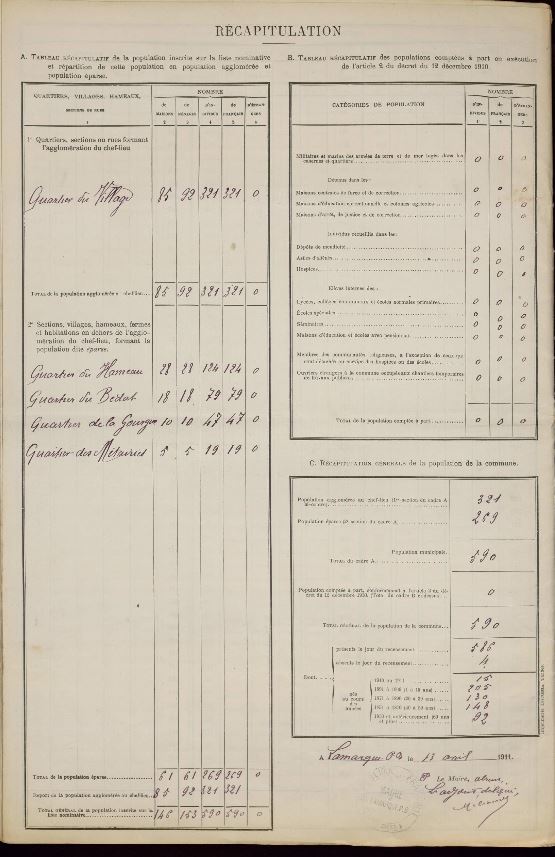 RÉCAPITULATION
A. TABLEAU RÉCAPITULATIF de la population inscrite sur la liste nominative
et répartition de cette population en population agglomérée et
population éparse.
QUARTIERS, VILLAGES, HAMEAUX,
SECTIONS OU RUES
1
NOMBRE
de MAISONS 2
de MÉNAGES 3
d'INDIVIDUS 4
de FRANÇAIS 5
d'ÉTRANGERS 6
1° Quartiers, sections ou rues formant
l'agglomération du chef-lieu
Quartier du Village 85 92 321 321 0
TOTAL de la population agglomérée au chef-lieu.... 85 92 321 321 0
2° Sections, villages, hameaux, fermes
et habitations en dehors de l'agglo-
mération du chef-lieu, formant la
population dite éparse.
Quartier du Hameau 28 28 124 124 0
Quartier du Bédat 18 18 79 79 0
Quartier de la 10 10 47 47 0
Quartier des Métairies 5 5 19 19 0
TOTAL de la population éparse.... 61 61 269 269 0
Report de la population agglomérée au chef-lieu.... 85 92 321 321
TOTAL GÉNÉRAL de la population inscrite sur la
liste nominative.... 146 153 590 590 0
B. TABLEAU RÉCAPITULATIF des populations comptées à part en exécution
de l'article 2 du décret du 12 décembre 1910.
CATÉGORIES DE POPULATION
1
NOMBRE
d'INDIVIDUS
de FRANÇAIS
d'ÉTRANGERS
Militaires et marins des armées de terre et de mer logés dans les
casernes et quartiers.... 0 0 0
Détenus dans les :
Maisons centrales de force et de correction.... 0 0 0
Maisons d'éducation correctionnelle et colonies agricoles.... 0 0 0
Maisons d'arrêt, de justice et de correction.... 0 0 0
Individus recueillis dans les :
Dépôts de mendicité.... 0 0 0
Asiles d'aliénés.... 0 0 0
Hospices.... 0 0 0
Élèves internes des :
Lycées, collèges communaux et écoles normales primaires.... 0 0 0
Écoles spéciales.... 0 0 0
Séminaires.... 0 0 0
Maisons d'éducation et écoles avec pensionnat.... 0 0 0
Membres des communautés religieuses, à l'exception de ceux qui
0 0 0
Ouvriers étrangers à la commune occupés aux chantiers temporaires
de travaux publics.... 0 0 0
TOTAL de la population comptée à part.... 0 0 0
C. RÉCAPITULATION GÉNÉRALE de la population de la commune.
Population agglomérée au chef-lieu (1re section du cadre A
ci-contre).... 321
Population éparse (2e section du cadre A).... 269
Population municipale.
TOTAL du cadre A.... 590
Population comptée à part, conformément à l'article 2 du dé-
cret du 12 décembre 1910. (Total du cadre B ci-dessus).... 0
TOTAL GÉNÉRAL de la population de la commune.... 590
Dont....
présents le jour du recensement.... 586
absents le jour du recensement.... 4
nés
au cours
des
années
15
205
130
148
92
A Lamarque le 13 avril 1911.
Le Maire,